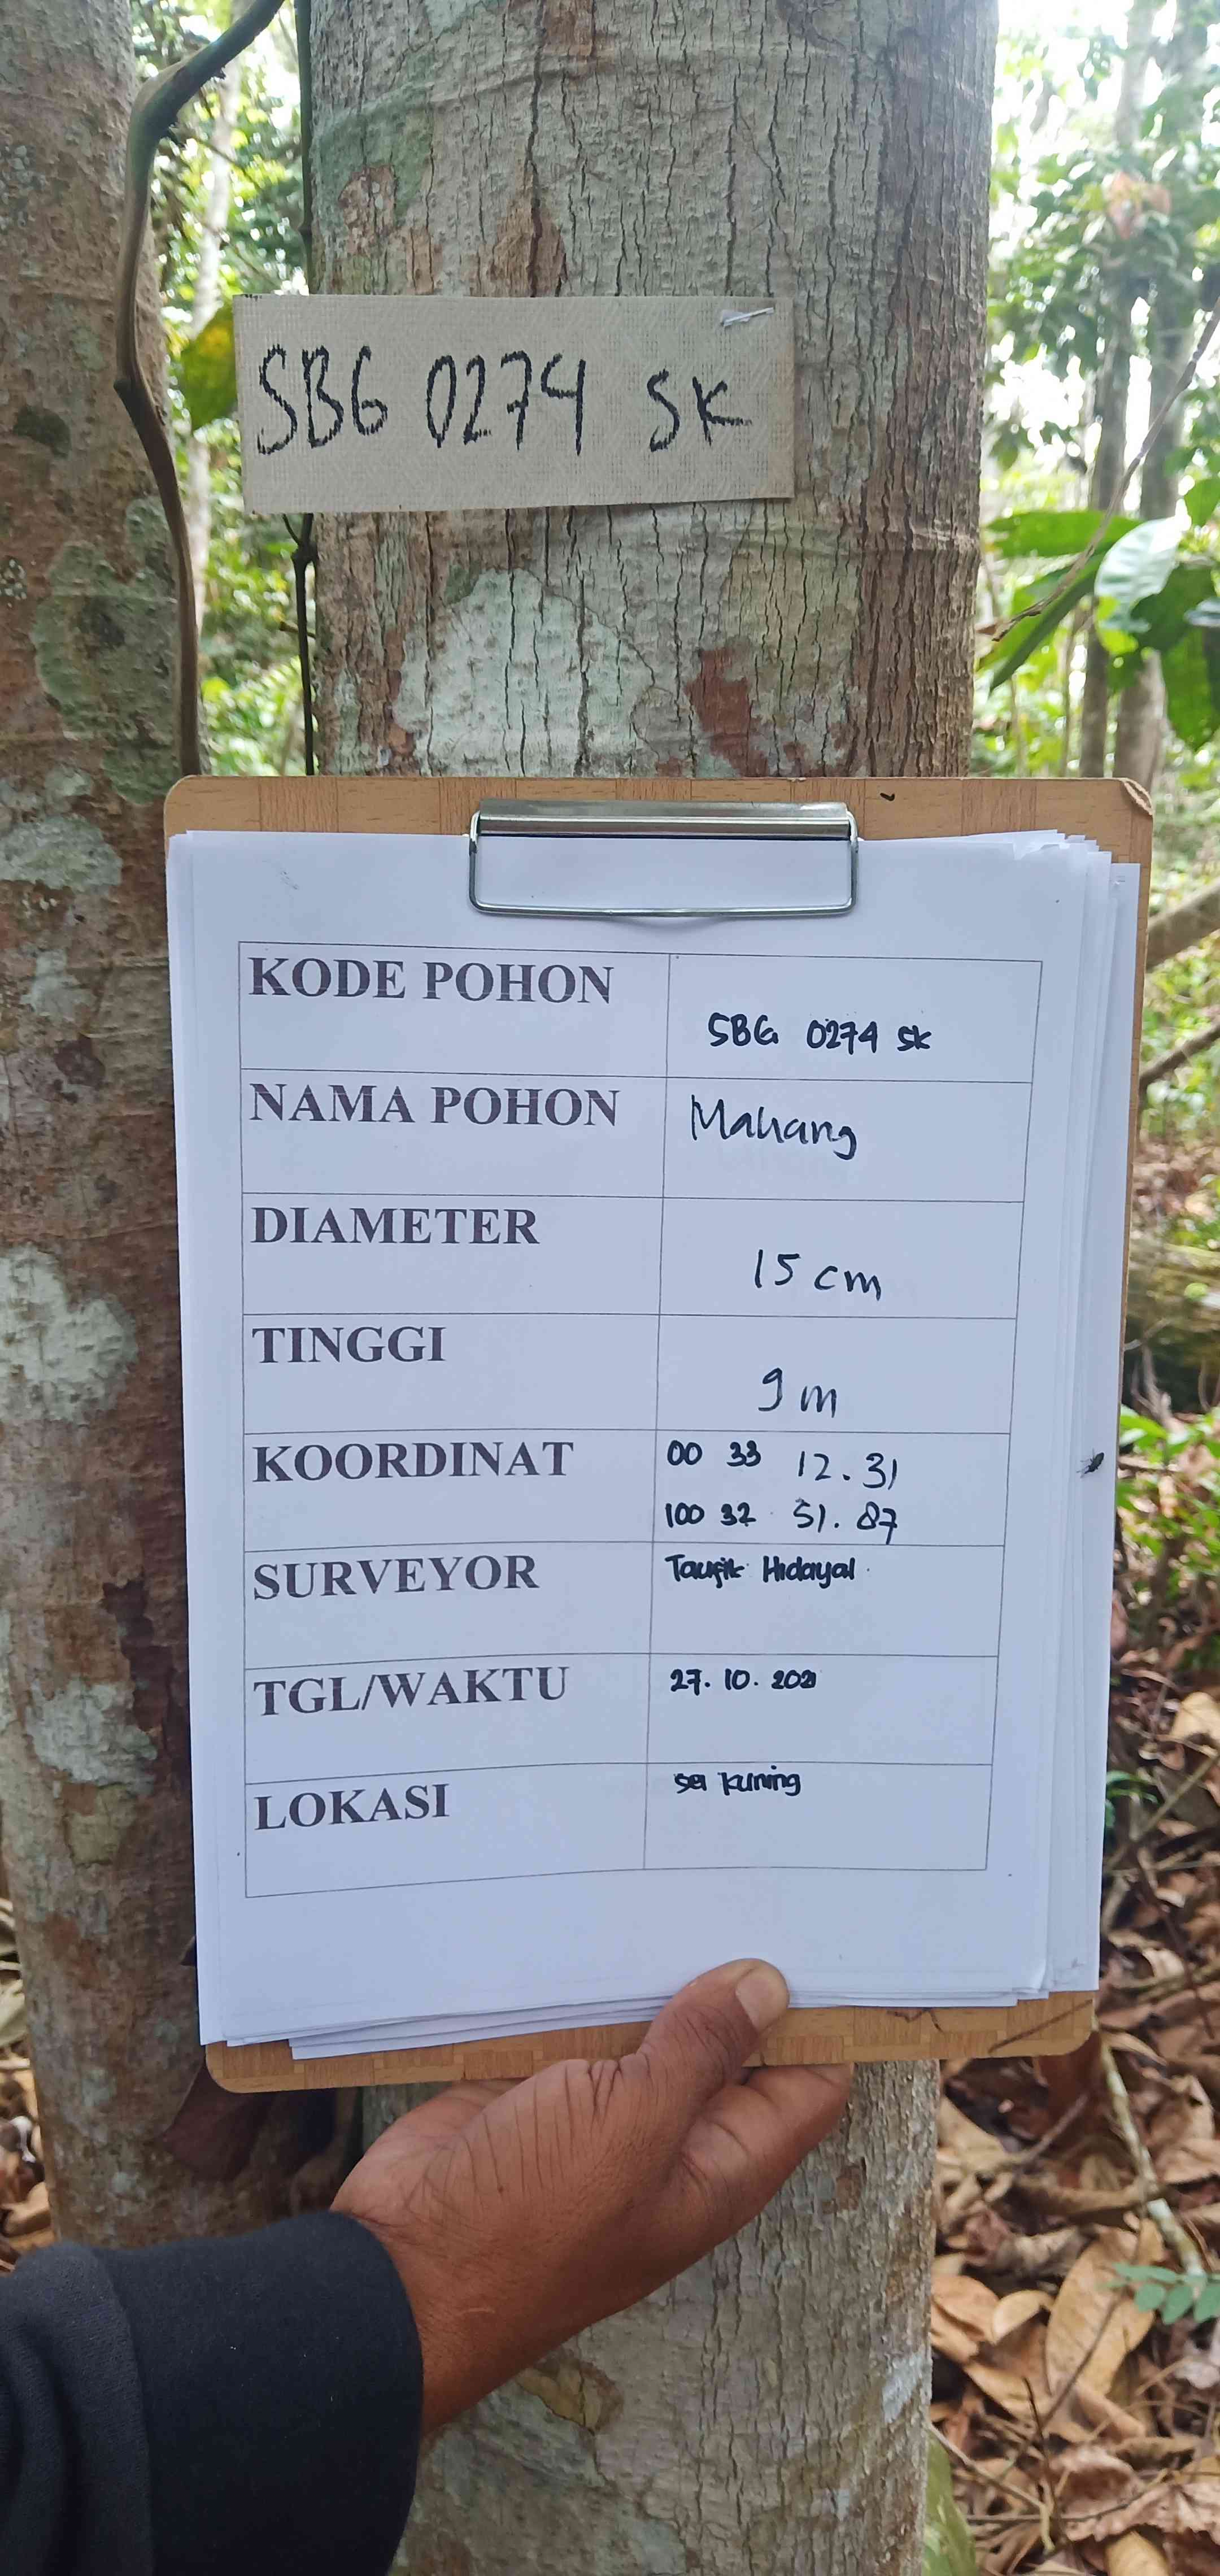 SBG 0274 SK
KODE POHON
SBG 0274 SK
NAMA POHON
Mahang
DIAMETER
15 cm
TINGGI
9 m
KOORDINAT
00 33 12.31
100 32 51.87
SURVEYOR
Taufik Hidayat
TGL/WAKTU
27. 10.
LOKASI
sei kuning